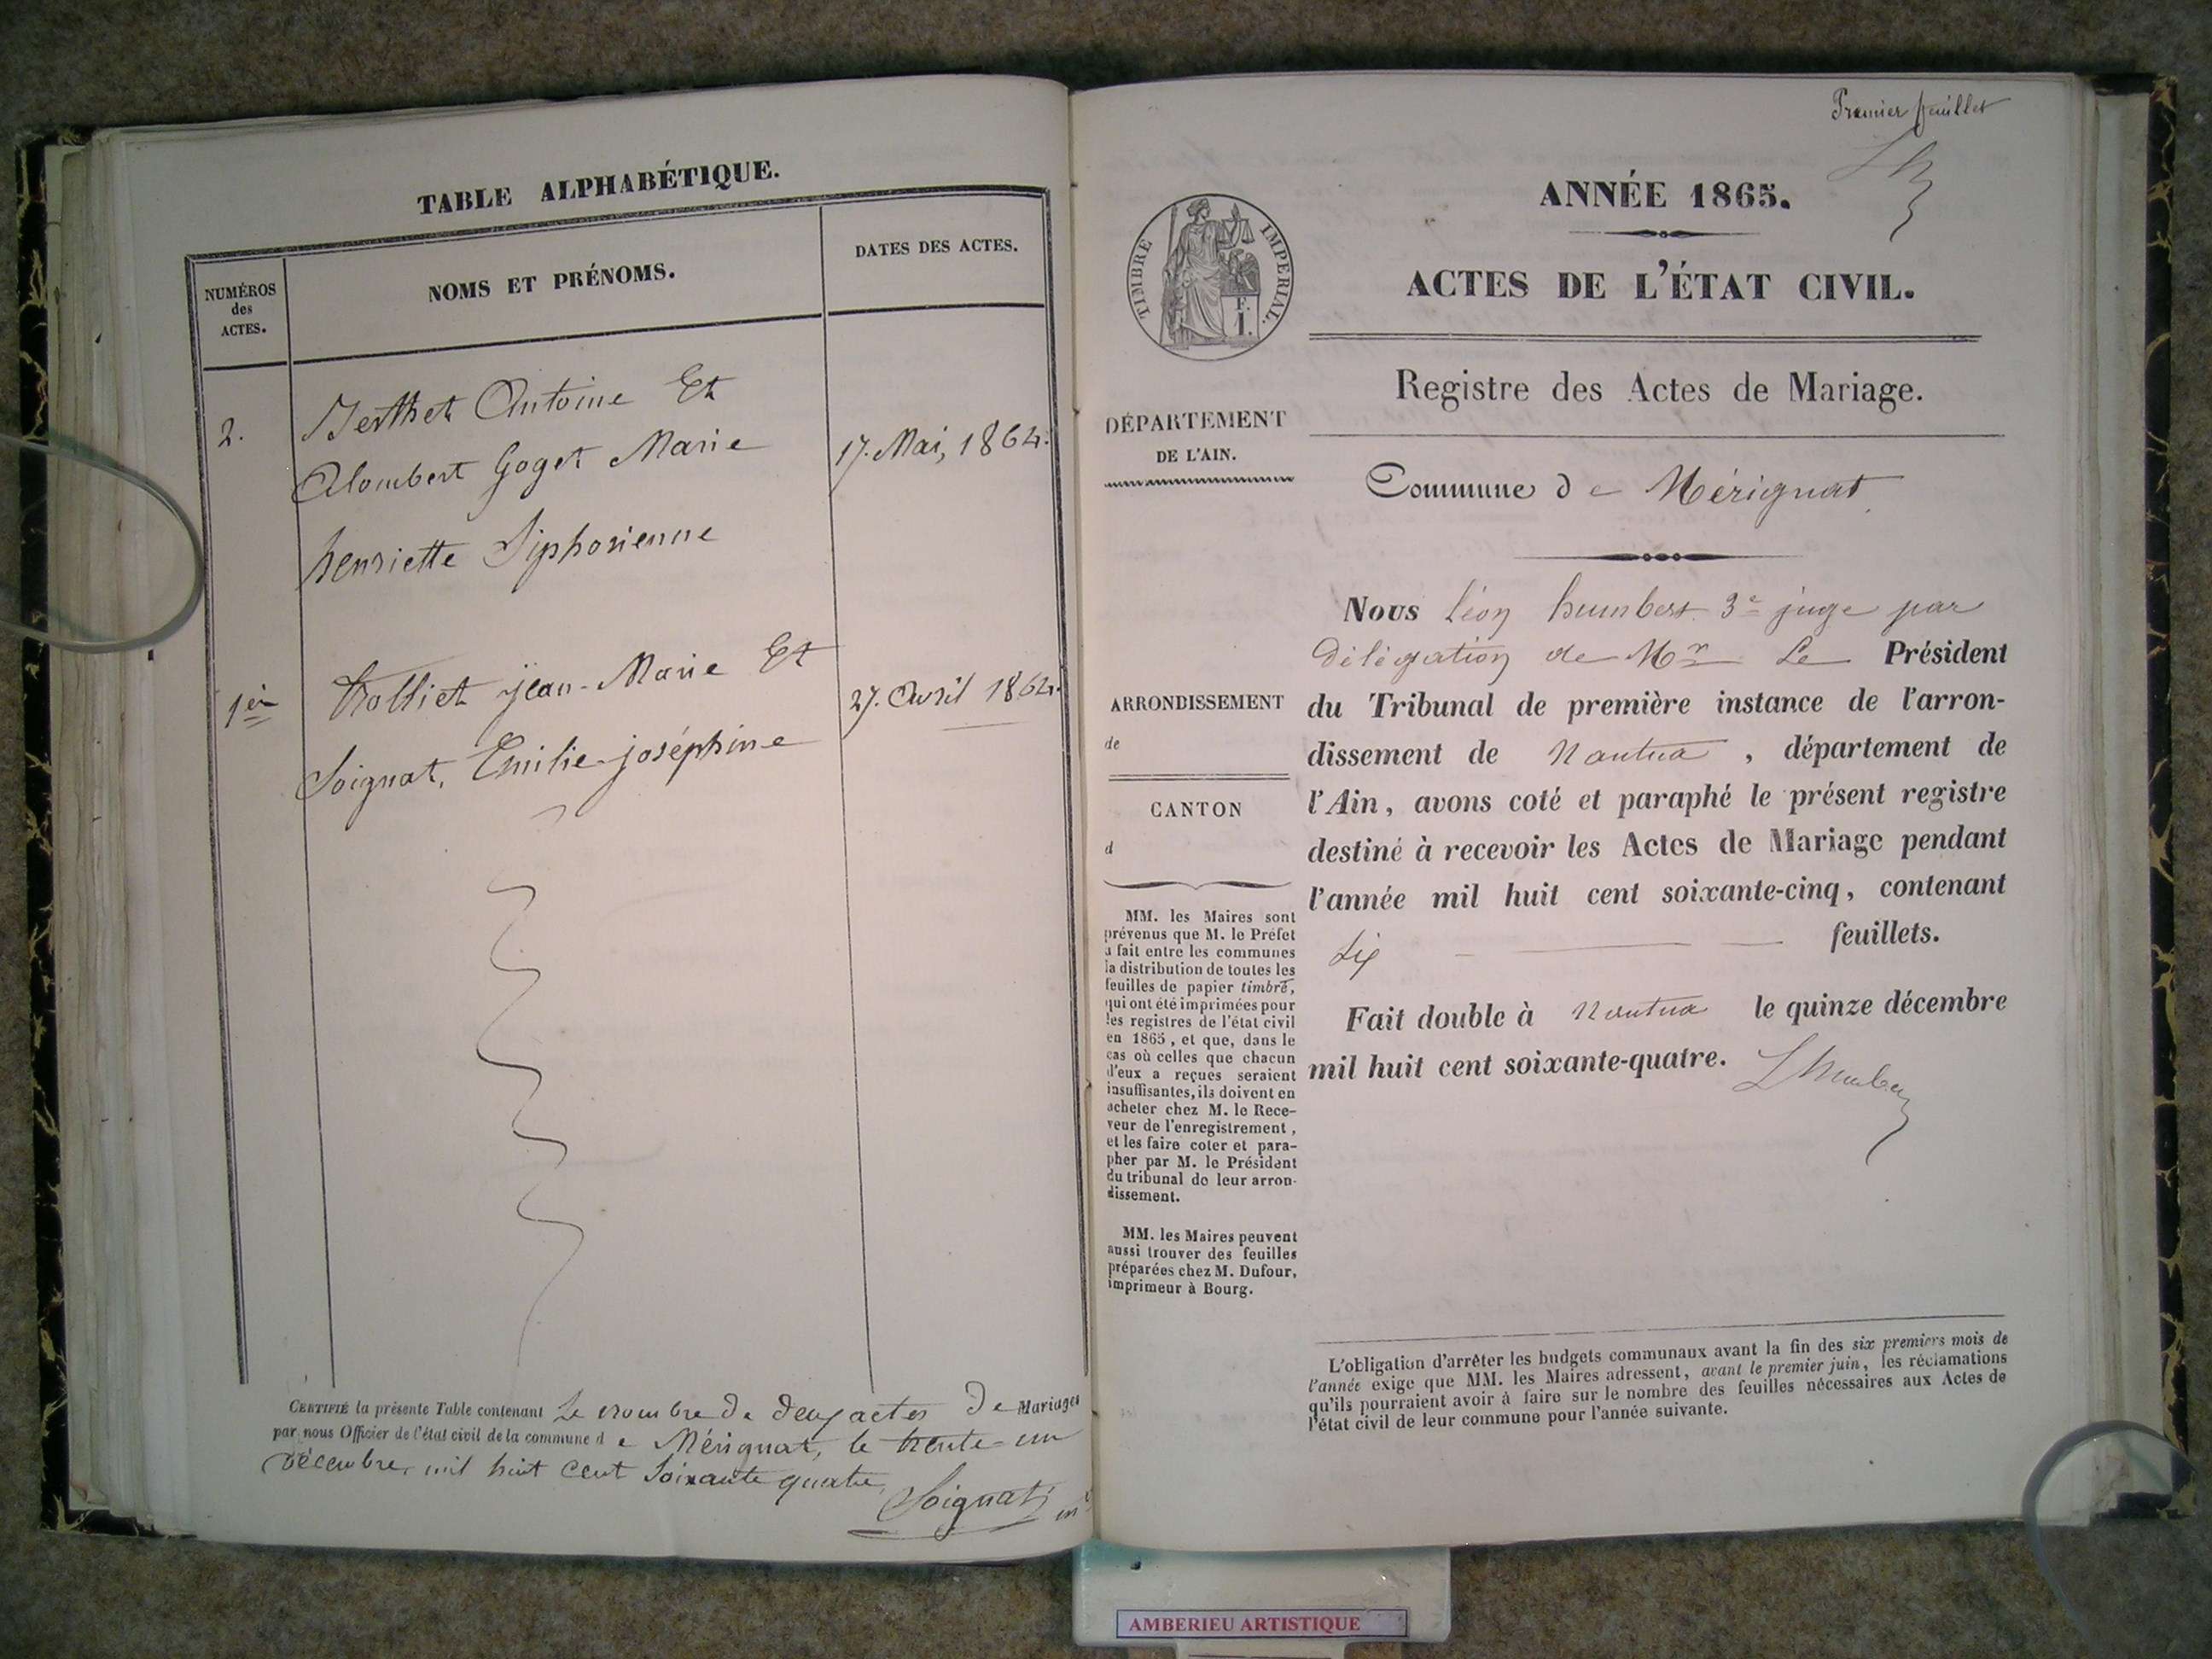 TABLE ALPHABÉTIQUE.
NUMÉROS
des
ACTES.
NOMS ET PRÉNOMS.
DATES DES ACTES.
2.
Berthet Antoine Et
Alombert Goget Marie
henriette Siphorienne
17. Mai, 1864.
1er
Trolliet jean-Marie Et
Soignat, Emilie-joséphine
27. Avril 1864.
CERTIFIÉ la présente Table contenant Le nombre de deux actes De Mariages
par nous Officier de l'état civil de la commune d e Mérignat, le trente-un
Décembre, mil huit Cent Soixante quatre,
Soignat
Premier feuillet
ANNÉE 1865.
ACTES DE L'ÉTAT CIVIL.
TIMBRE IMPERIAL.
Registre des Actes de Mariage.
DÉPARTEMENT
DE L'AIN.
Commune d e Mérignat
Nous Léon humbert 3e juge par
délégation de Mr Le Président
du Tribunal de première instance de l'arron-
dissement de Nantua, département de
l'Ain, avons coté et paraphé le présent registre
destiné à recevoir les Actes de Mariage pendant
l'année mil huit cent soixante-cinq, contenant
six feuillets.
Fait double à Nantua le quinze décembre
mil huit cent soixante-quatre.
LHumbert
ARRONDISSEMENT
de
CANTON
d
MM. les Maires sont
prévenus que M. le Préfet
a fait entre les communes
la distribution de toutes les
feuilles de papier timbré,
qui ont été imprimées pour
les registres de l'état civil
en 1865, et que, dans le
cas où celles que chacun
d'eux a reçues seraient
insuffisantes, ils doivent en
acheter chez M. le Rece-
veur de l'enregistrement,
et les faire coter et para-
pher par M. le Président
du tribunal de leur arron-
dissement.
MM. les Maires peuvent
aussi trouver des feuilles
préparées chez M. Dufour,
imprimeur à Bourg.
L'obligation d'arrêter les budgets communaux avant la fin des six premiers mois de
l'année exige que MM. les Maires adressent, avant le premier juin, les réclamations
qu'ils pourraient avoir à faire sur le nombre des feuilles nécessaires aux Actes de
l'état civil de leur commune pour l'année suivante.
AMBERIEU ARTISTIQUE